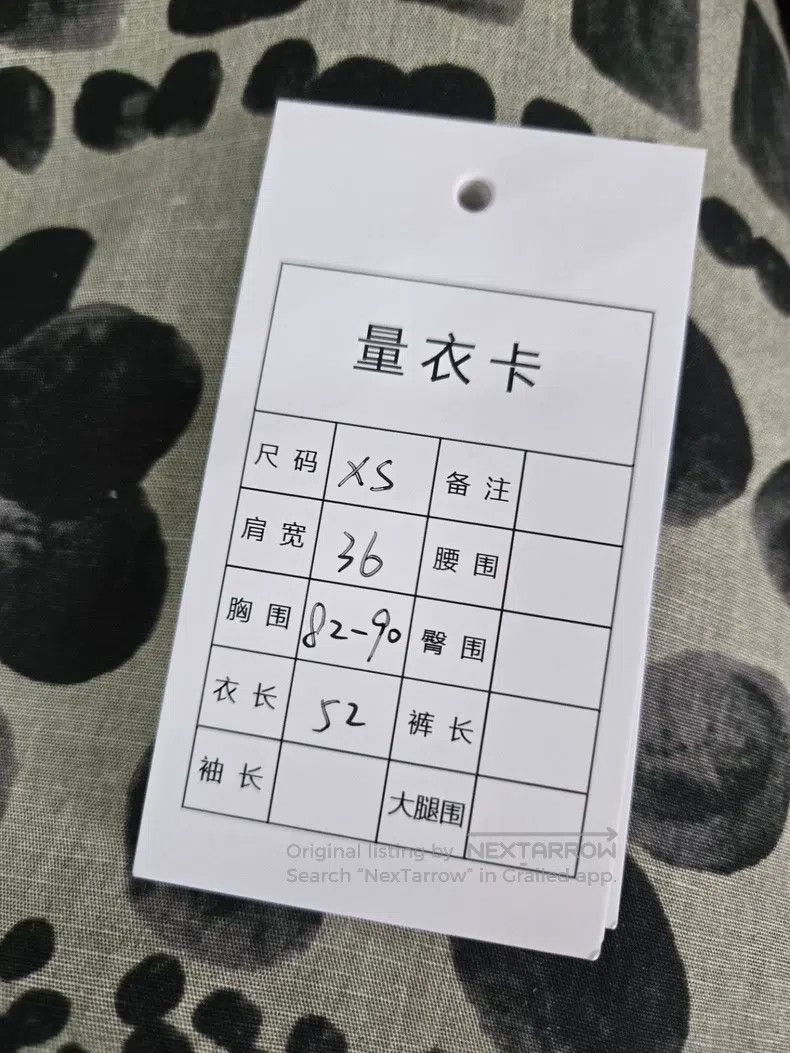 量衣卡
尺码 XS 备注
肩宽 36 腰围
胸围 82-90 臀围
衣长 52 裤长
袖长 大腿围
Original listing by NEXTARROW
Search "NexTarrow" in Grailed app.